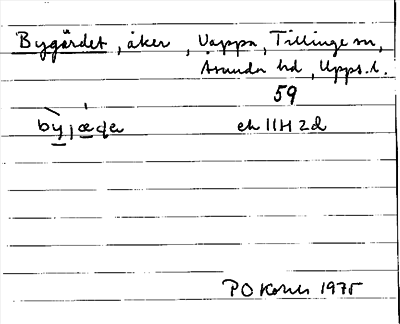 Bygärdet, åker, Vappa, Tillinge sn,
Åsunda hd, Upps. l.
59
byjæḍa ek 11H 2d
P O Korus 1975